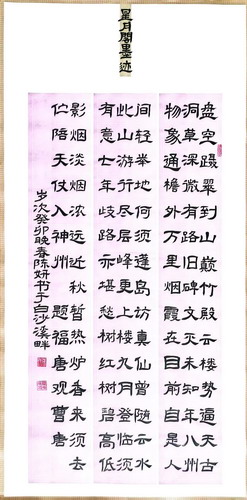 星月閣墨迹
盘空蹑翠到山巅竹殿云楼势逼天古
洞草深微有路旧碑文灭未知年八州
物象通檐外万里烟霞在目前自是人
间轻举地何须蓬岛访真仙曾随云水
此山游行尽层峰更上楼九月登临须
有意七年歧路亦堪愁树红树碧高低
影烟淡烟浓远近秋暂热炉香未须去
伫陪天仗入神州 题福唐观曹唐
岁次癸卯晚春陈妍书于白沙溪畔